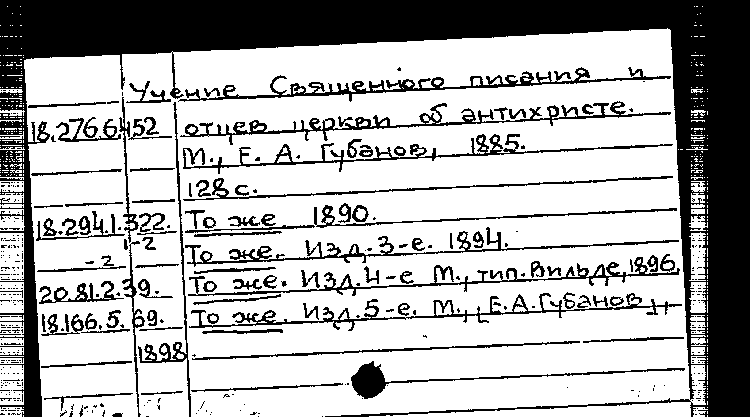 Учение Священного писания и
18.276.6.452 отцев церкви об антихристе.
М., Е. А. Губанов, 1885.
128 с.
18.294.1.322. То же 1890.
1-2 То же. Изд. 3-е. 1894.
-2
20.81.2.39. То же. Изд. 4-е М., тип. Вильде, 1896.
18.166.5.69. То же. Изд. 5-е. М., [Е. А. Губанов],
1898